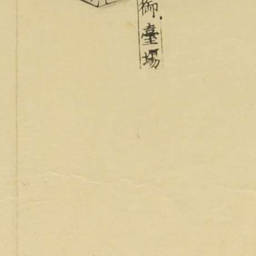 御臺場